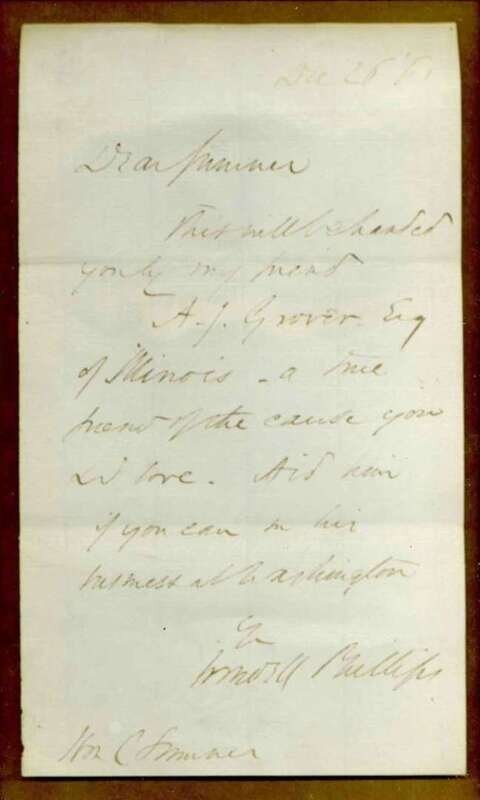 Dec 26 '61
Dear Sumner
This will be handed
you by my friend
A. J. Grover Esq
of Illinois - a true
friend of the cause you
& I love. Aid him
if you can in his
business at Washington
Yrs
Wendell Phillips
Hon C Sumner